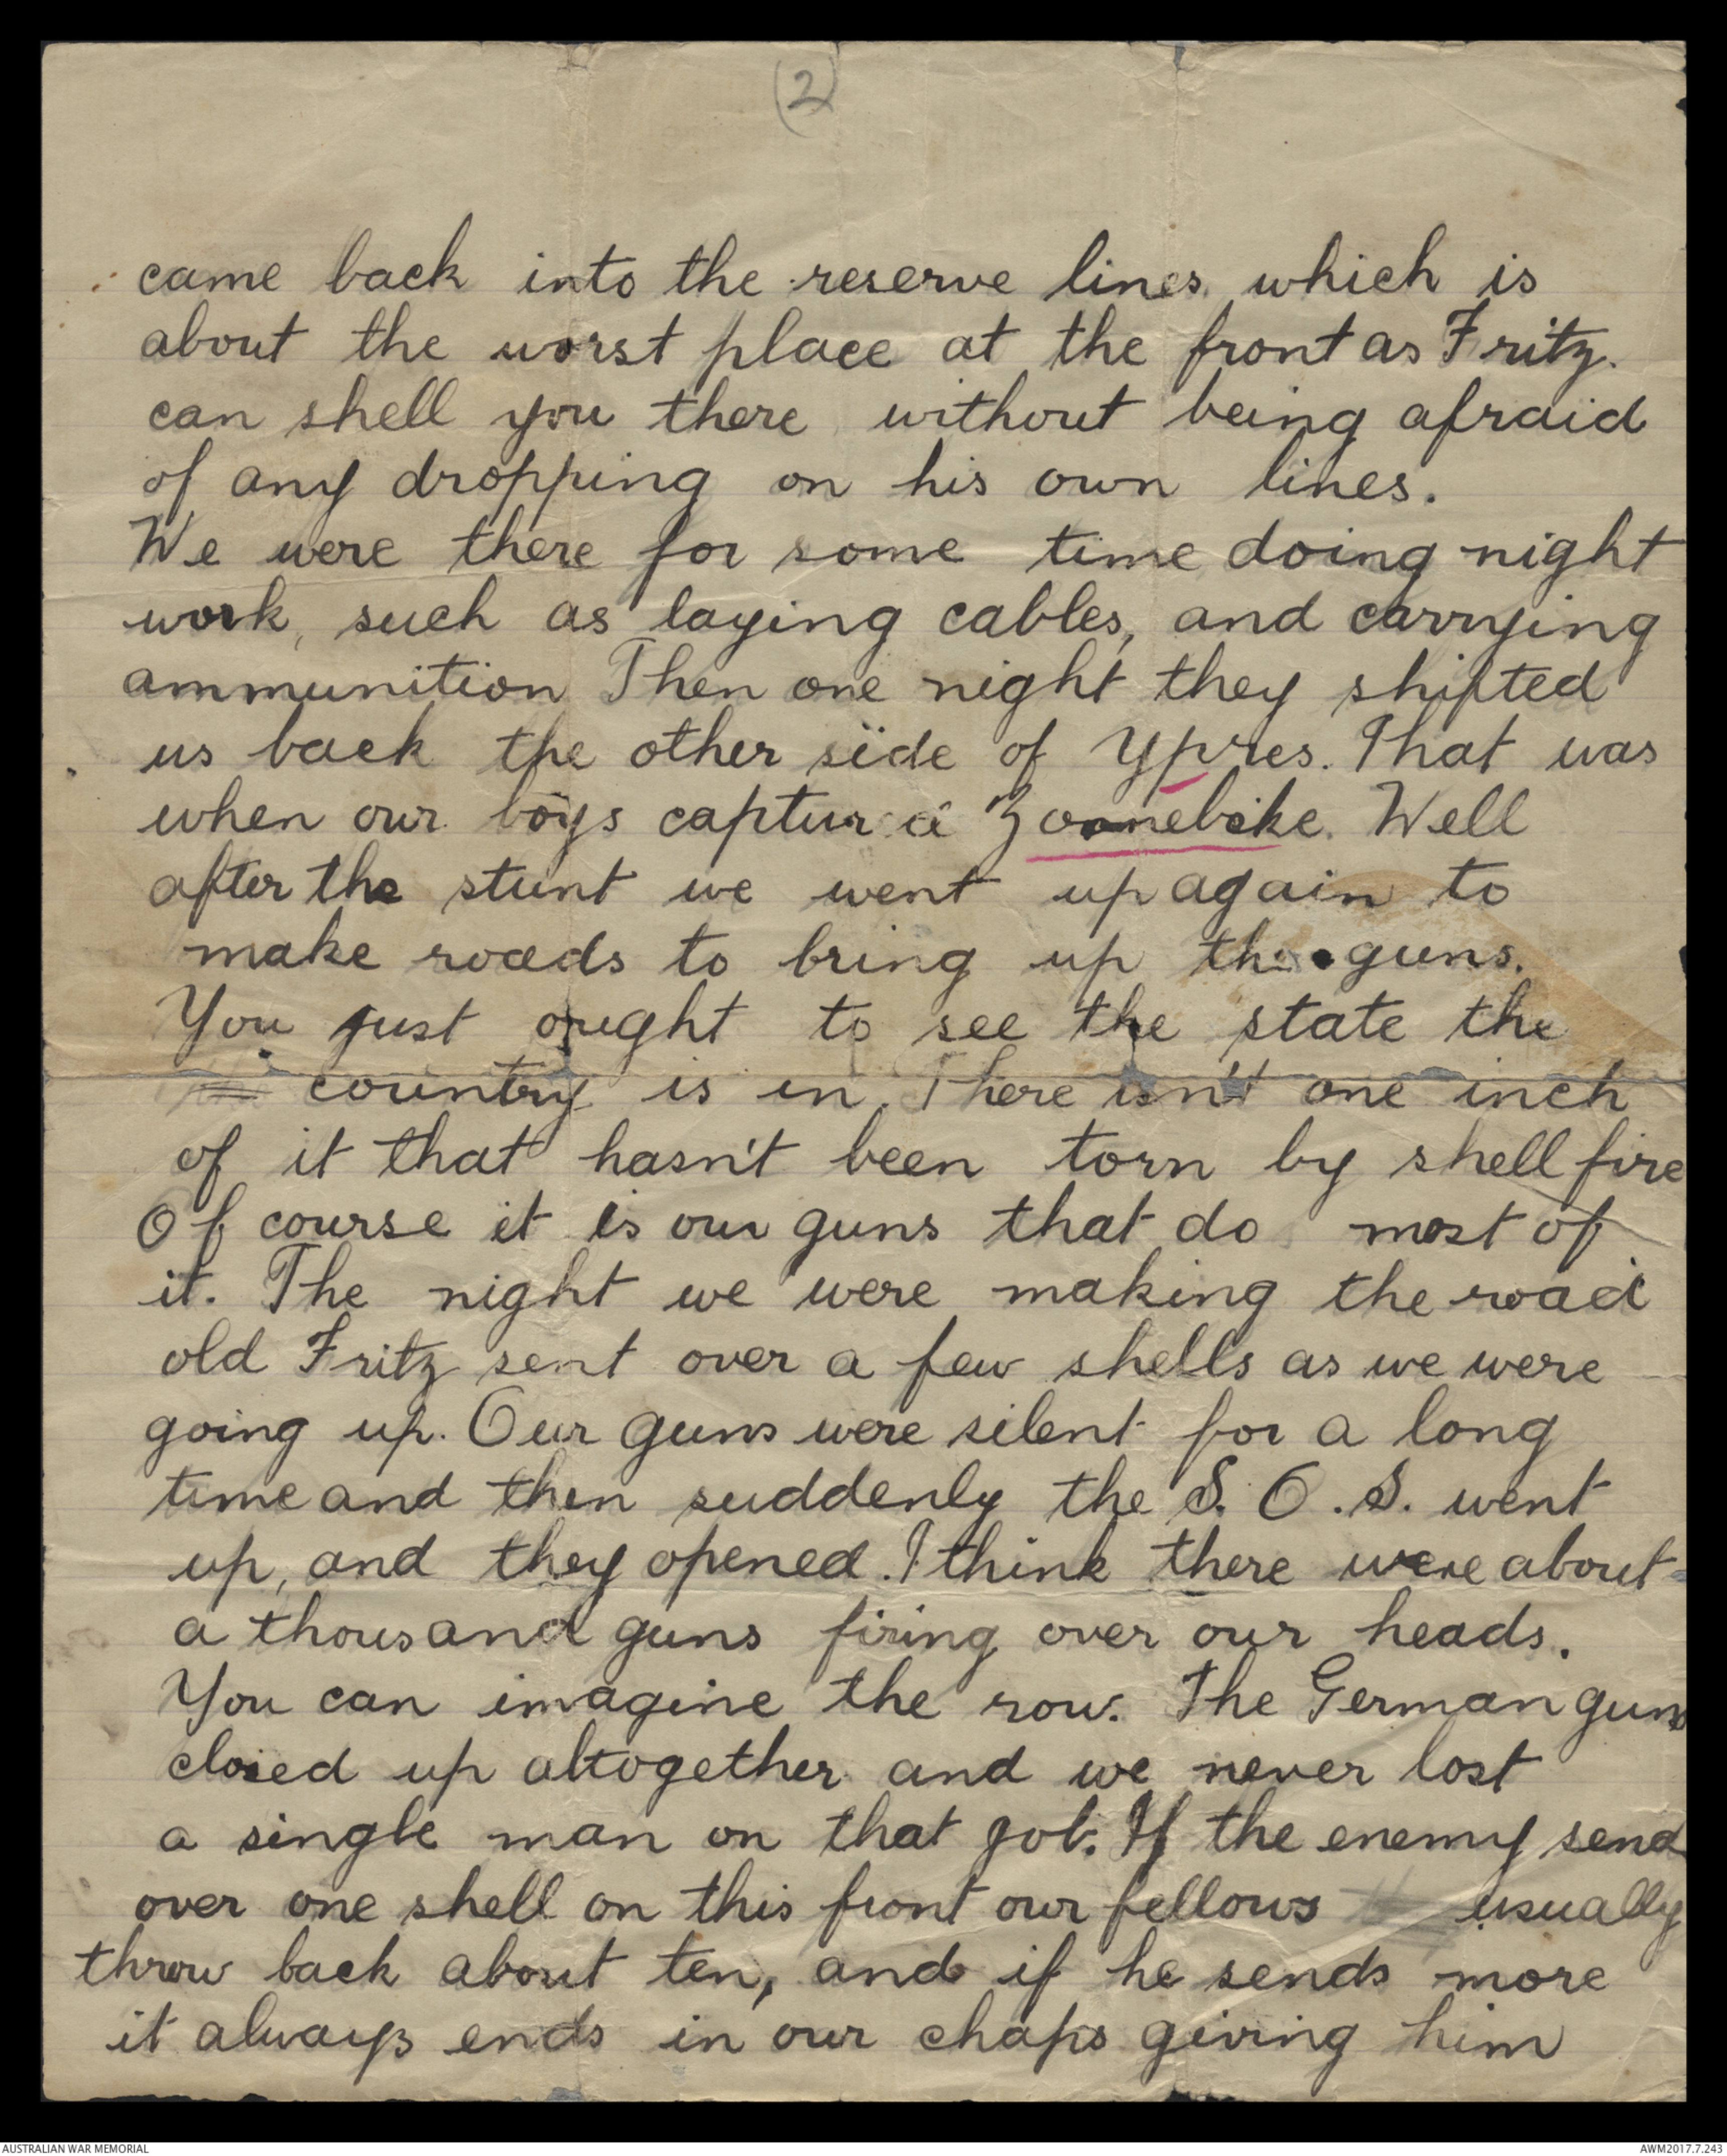 (2)
came back into the reserve lines which is
about the worst place at the front as Fritz.
can shell you there without being afraid
of any dropping on his own lines.
We were there for some time doing night
work, such as laying cables, and carrying
ammunition Then one night they shifted
us back the other side of Ypres. That was
when our boys captured Zonnebeke. Well
after the stunt we went up again to
make roads to bring up the guns.
You just ought to see the state the
country is in. There isn't one inch
of it that hasn't been torn by shell fire
Of course it is our guns that do most of
it. The night we were making the road
old Fritz sent over a few shells as we were
going up. Our guns were silent for a long
time and then suddenly the S.O.S. went
up, and they opened. I think there were about
a thousand guns firing over our heads.
You can imagine the row. The German guns
closed up altogether and we never lost
a single man on that job. If the enemy send
over one shell on this front our fellows usually
throw back about ten, and if he sends more
it always ends in our chaps giving him
AUSTRALIAN WAR MEMORIAL
AWM2017.7.243